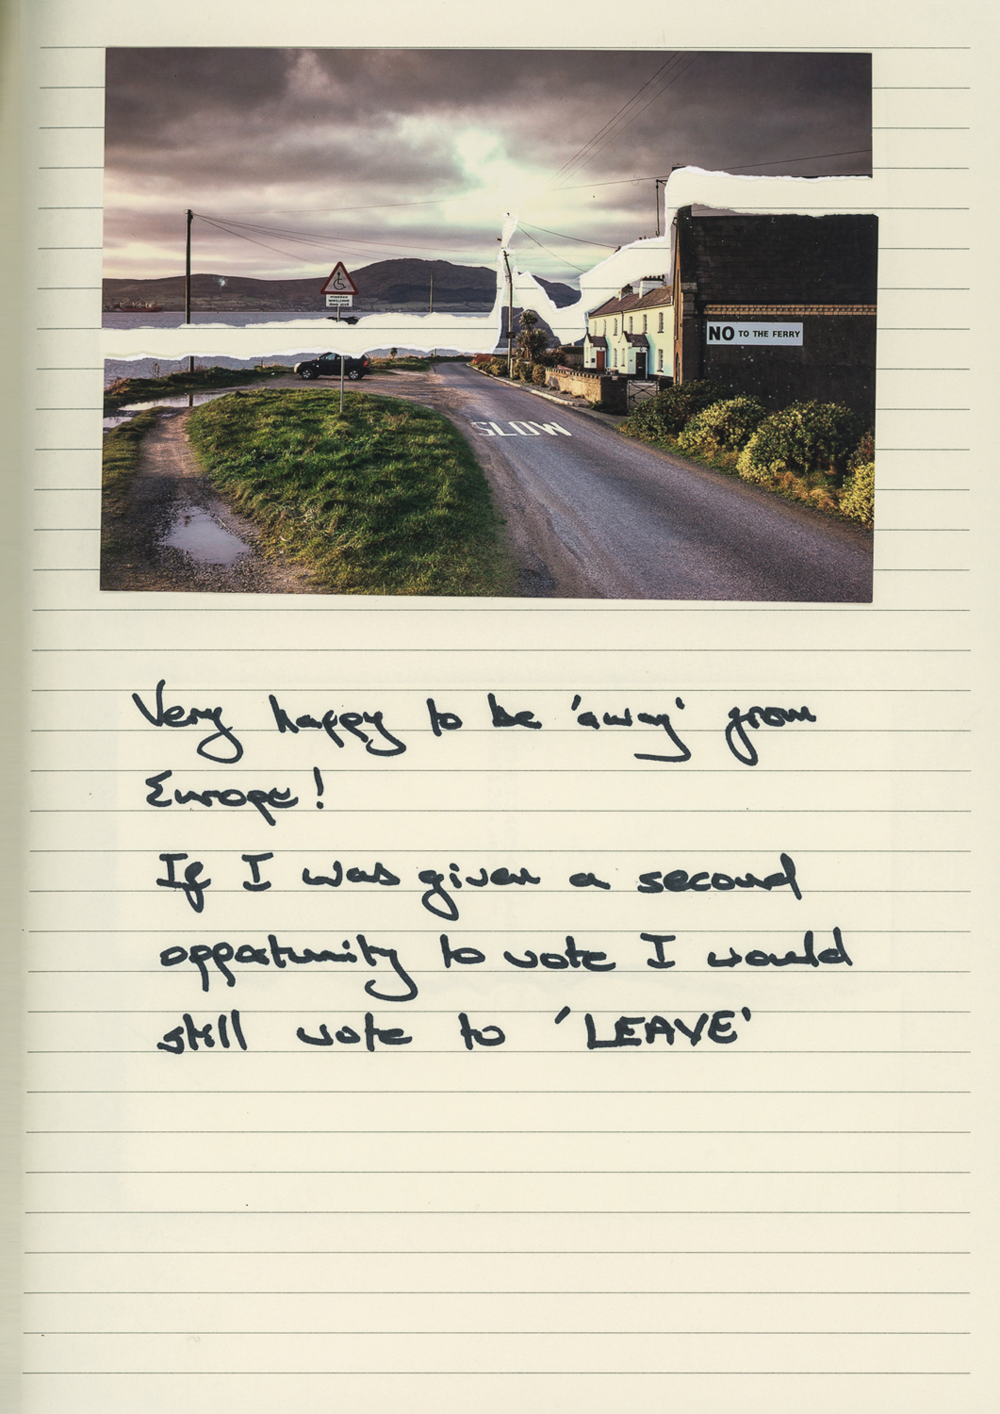 NO TO THE FERRY
SLOW
Very happy to be 'away' from
Europe!
If I was given a second
opportunity to vote I would
still vote to 'LEAVE'